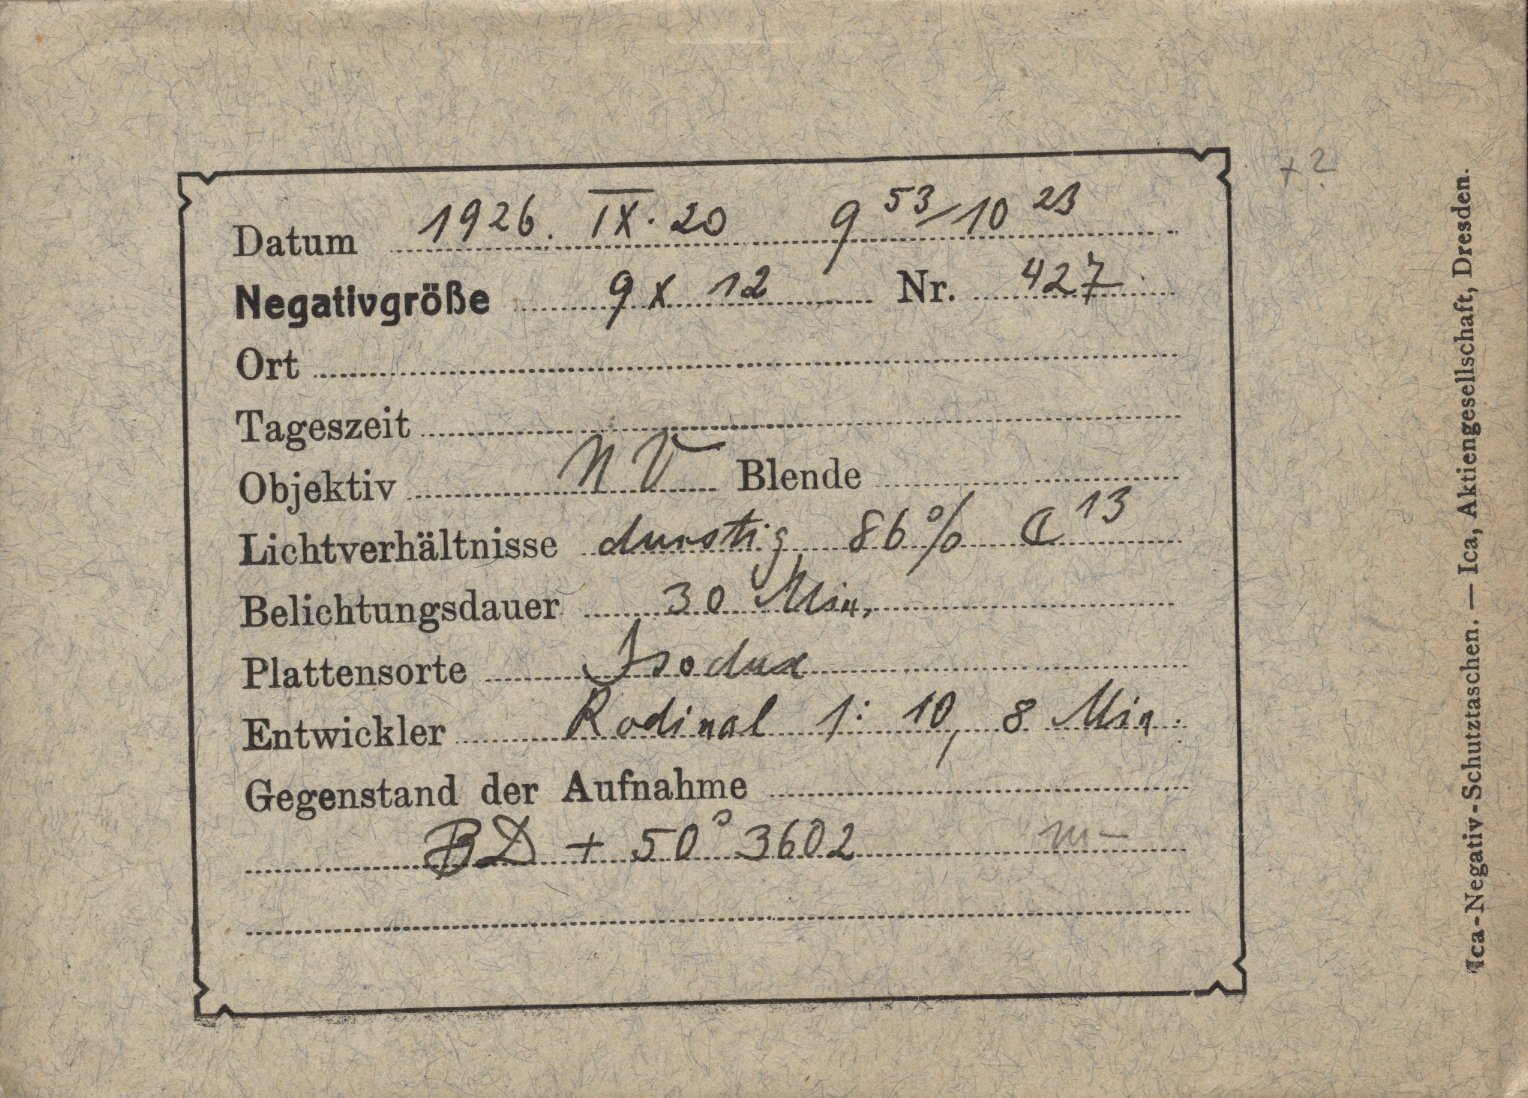 + ?
Datum 1926. IX. 20 9 53/10 23
Negativgröße 9 x 12 Nr. 427
Ort
Tageszeit
Objektiv N V Blende
Lichtverhältnisse dunstig 86% 13
Belichtungsdauer 30 Min.
Plattensorte Isodux
Entwickler Rodinal 1:10, 8 Min.
Gegenstand der Aufnahme
BD + 50° 3602 m-
Ica-Negativ-Schutztaschen. — Ica, Aktiengesellschaft, Dresden.